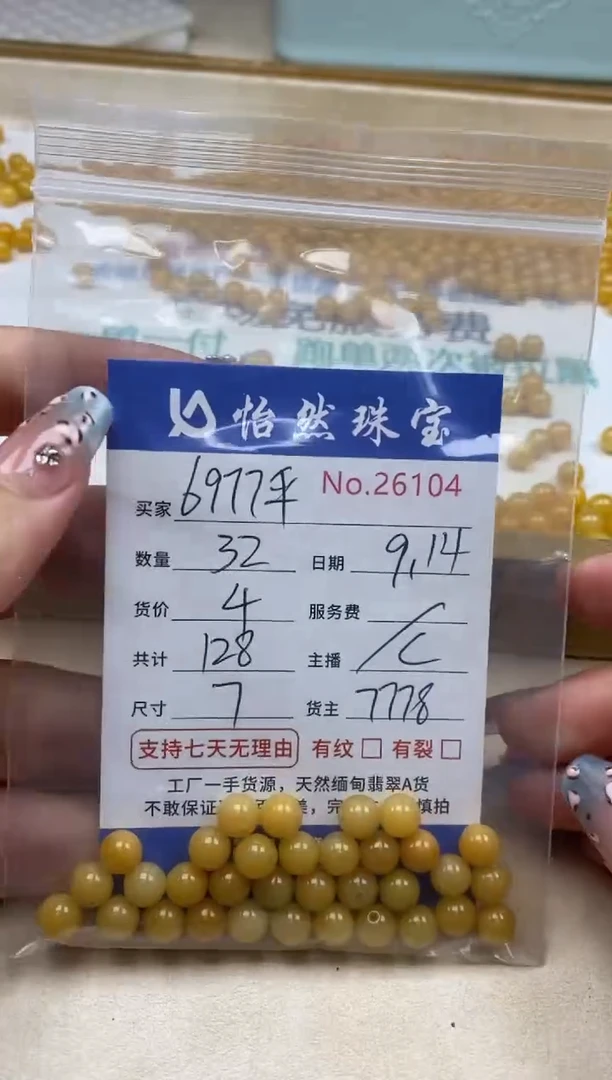 怡然珠宝
No.26104
买家 6977平
数量 32 日期 9,14
货价 4 服务费 /
共计 128 主播 C
尺寸 7 货主 7778
支持七天无理由 有纹 □ 有裂 □
工厂一手货源，天然缅甸翡翠A货
不敢保证 美，完 慎拍